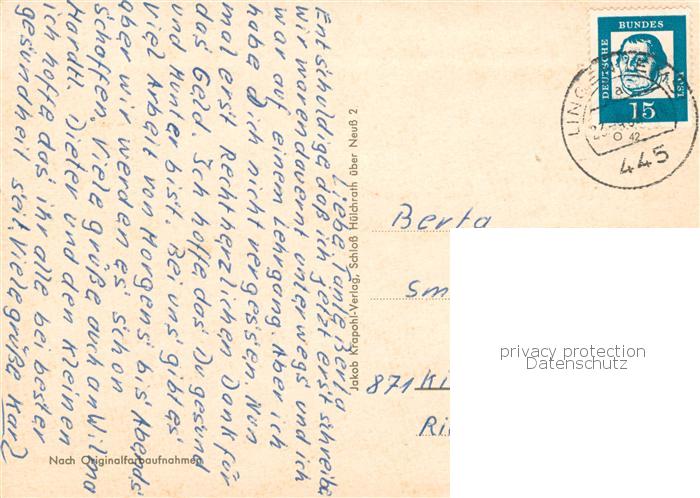 Liebe Tante Berta
Entschuldge daß ich jetzt erst schreibe
wir waren davernt unterwegs und ich
war auf einem Lehrgang. Aber ich
habe Dich nicht vergessen. Nun
mal erst Rechtherzlichen Dank für
das Geld. Ich hoffe das Du gesund
und Munter bist. Bei uns gibt es
viel Arbeit von Morgens bis Abends
aber wir werden es schon
schaffen. Viele grüße auch an Wilma
Hardtl. Dieter und den Kleinen
ich hoffe das ihr alle bei bester
gesundheit seit. Viele grüße Karl
Nach Originalfarbaufnahmen
Jakob Krapohl-Verlag, Schloß Hülchrath über Neuß 2
DEUTSCHE BUNDESPOST
15
LINGEN
a
42
445
Berta
Sm
871 Ki
Ri
privacy protection
Datenschutz